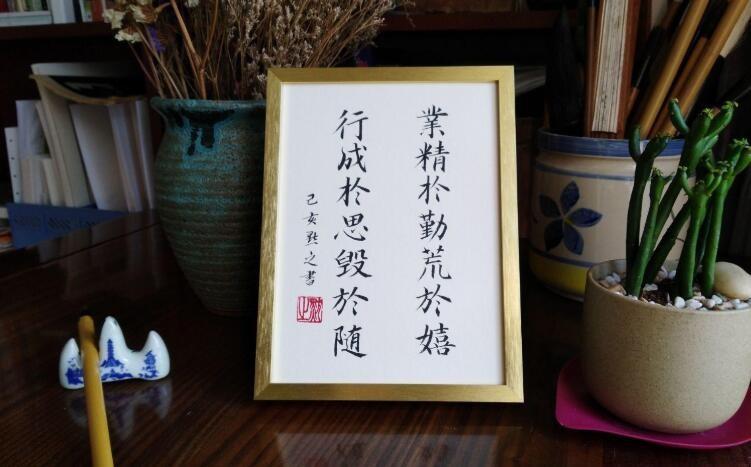 業精於勤荒於嬉
行成於思毀於隨
己亥點之書